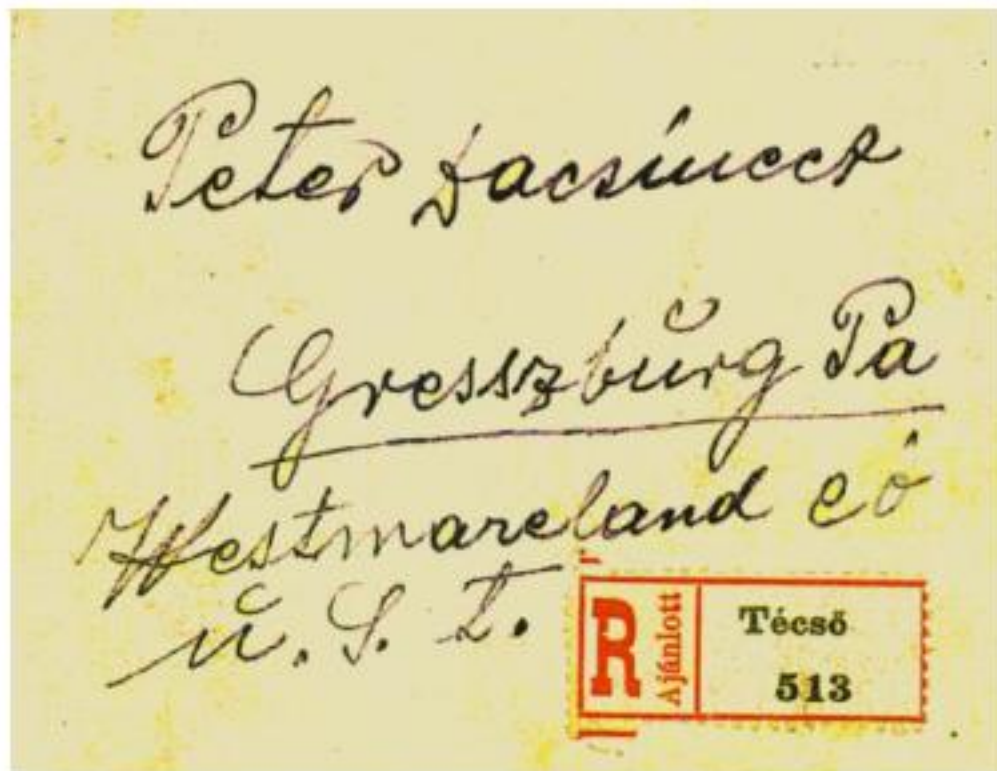 Peter Dacsinecz
Gresszbŭrg Pa
Westmareland Co
ŭ. S.
R Ajánlott Técső
513